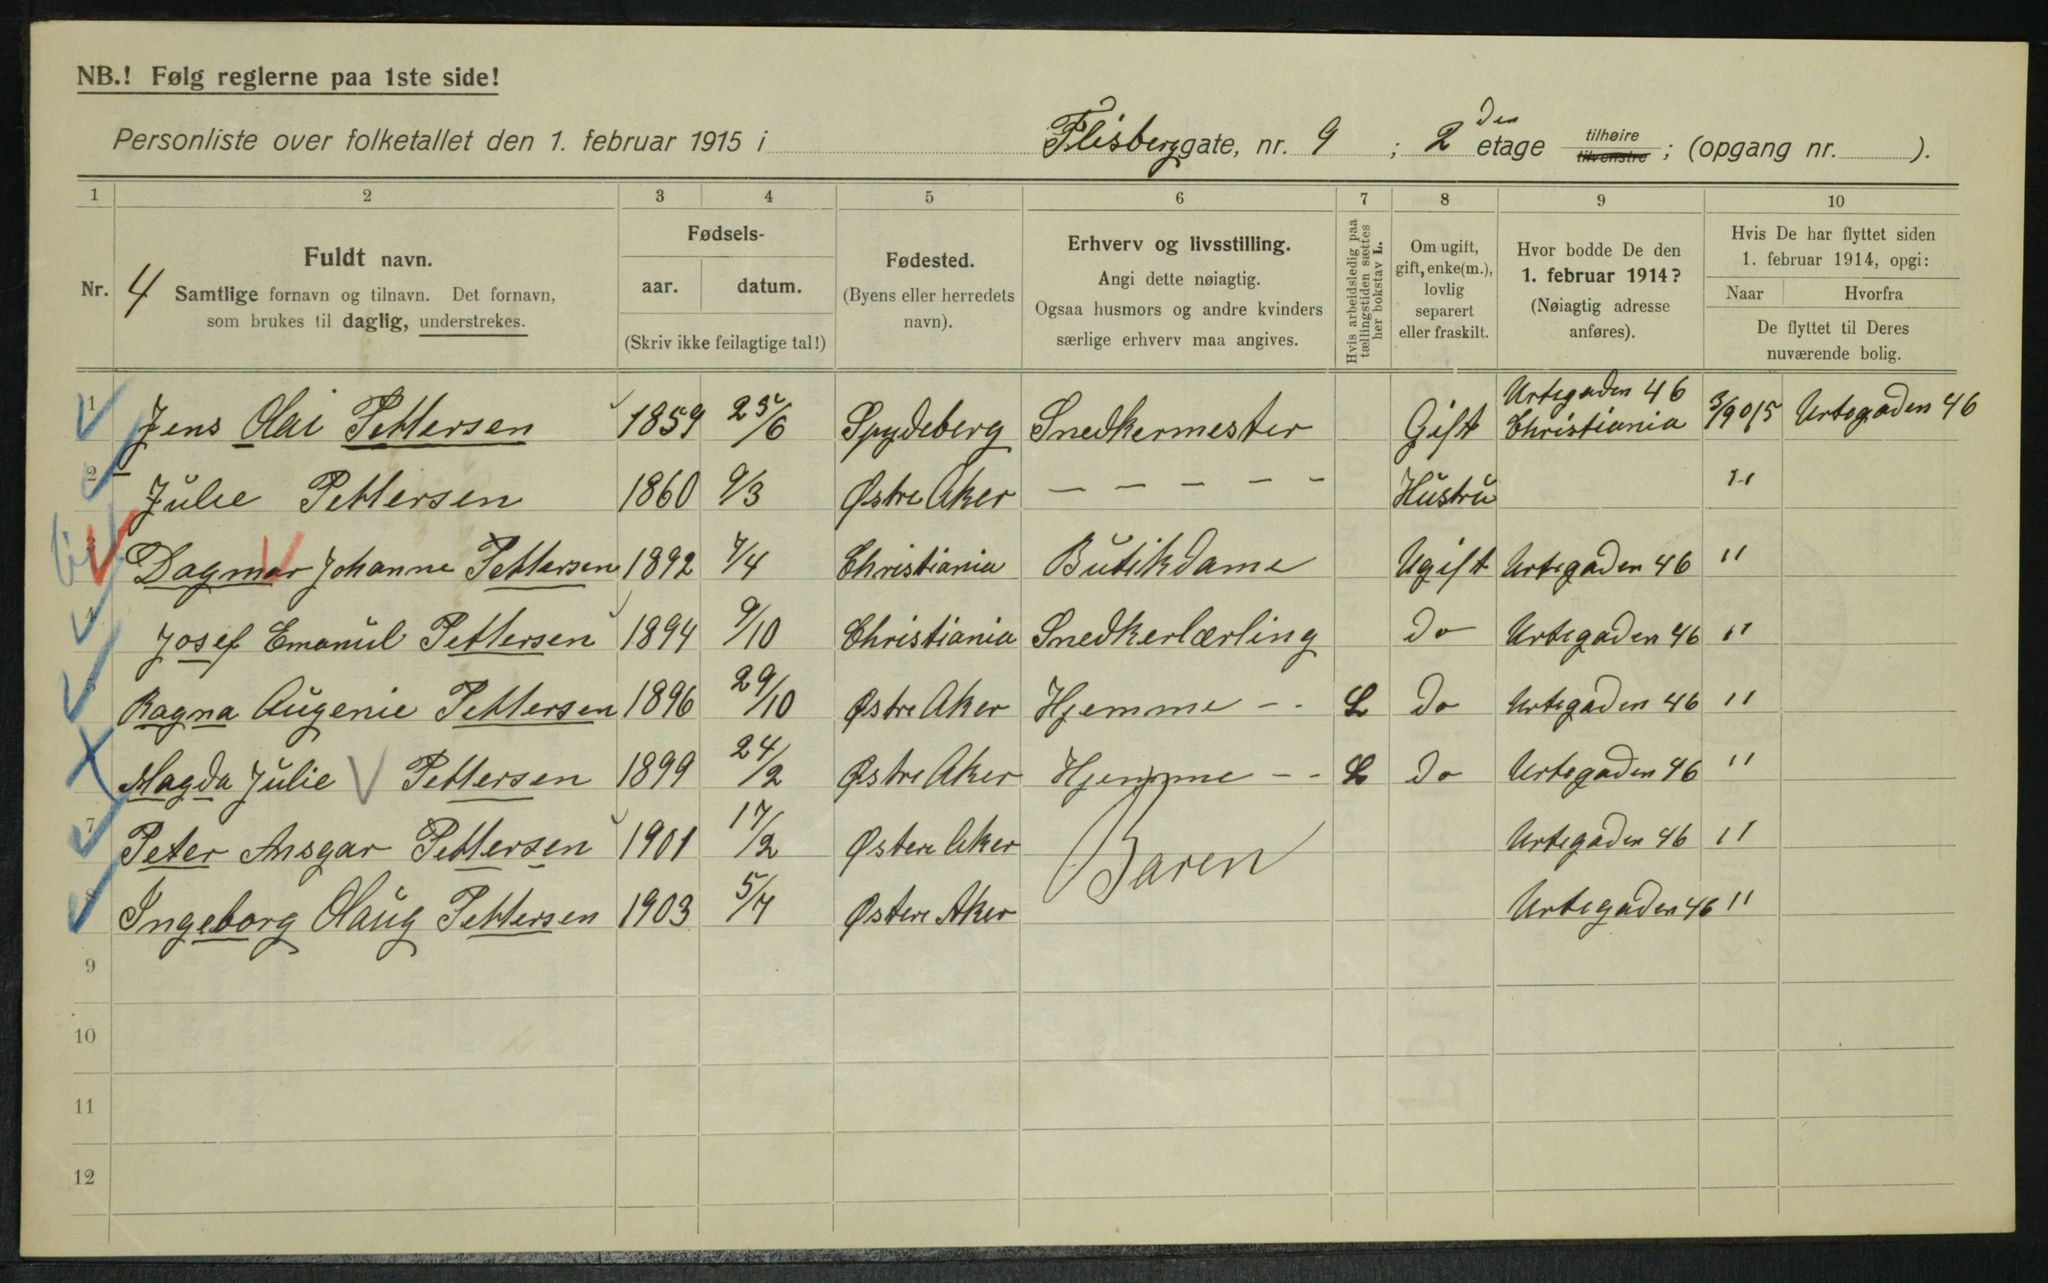 NB.! Følg reglerne paa 1ste side!
Personliste over folketallet den 1. februar 1915 i Flisberggate, nr. 9 ; 2 den etage tilhøire tilvenstre ; (opgang nr. ).
1 2 3 4 5 6 7 8 9 10
Nr. 4
Fuldt navn.
Samtlige fornavn og tilnavn. Det fornavn,
som brukes til daglig, understrekes.
Fødsels-
aar. datum.
(Skriv ikke feilagtige tal!)
Fødested.
(Byens eller herredets
navn).
Erhverv og livsstilling.
Angi dette nøiagtig.
Ogsaa husmors og andre kvinders
særlige erhverv maa angives.
Hvis arbeidsledig paa
tællingstiden sættes
her bokstav L.
Om ugift,
gift, enke(m.),
lovlig
separert
eller fraskilt.
Hvor bodde De den
1. februar 1914?
(Nøiagtig adresse
anføres).
Hvis De har flyttet siden
1. februar 1914, opgi:
Naar Hvorfra
De flyttet til Deres
nuværende bolig.
1 Jens Olai Pettersen 1859 25/6 Spydeberg Snedkermester Gift Urtegaden 46 Christiania 3/9 015 Urtegaden 46
2 Julie Pettersen 1860 9/3 Østre Aker – – – – – Hustru "
3 Dagmar Johanne Pettersen 1892 7/4 Christiania Butikdame Ugift Urtegaden 46 "
4 Josef Emanuel Pettersen 1894 9/10 Christiania Snedkerlærling do Urtegaden 46 "
5 Ragna Augenie Pettersen 1896 29/10 Østre Aker Hjemme – - L do Urtegaden 46 "
Magda Julie Pettersen 1899 24/2 Østre Aker Hjemme – - L do Urtegaden 46 "
7 Peter Ansgar Pettersen 1901 17/2 Østere Aker Baren Urtegaden 46 "
8 Ingeborg Olaug Pettersen 1903 5/7 Østere Aker Urtegaden 46 "
9
10
11
12